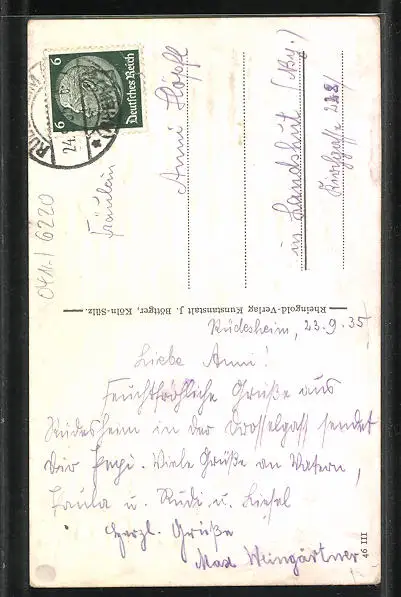 Rüdesheim, 23.9.35
Liebe Anni!
Feuchtfröhliche Grüße aus
Rüdesheim in der Drosselgass sendet
Dir Pepi. Viele Grüße an Vatern,
Paula u. Rudi u. Liesel
Herzl. Grüße
Max Weingärtner
Fräulein
Anni Höpfl
in Landshut (By.)
Rheingold-Verlag Kunstanstalt J. Böttger, Köln-Sülz.
46 III
Deutsches Reich
6
6
24.